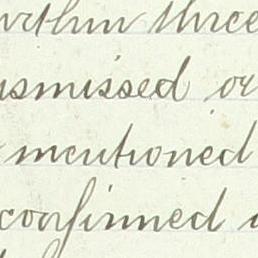 within three
ismissed or
mentioned
confirmed